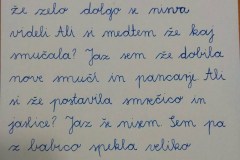 že zelo dolgo se nisva
videli. Ali si medtem že kaj
smučala? Jaz sem že dobila
nove smuči in pancarje. Ali
si že postavila smrečico in
jaslice? Jaz še nisem. Sem pa
z babico spekla veliko